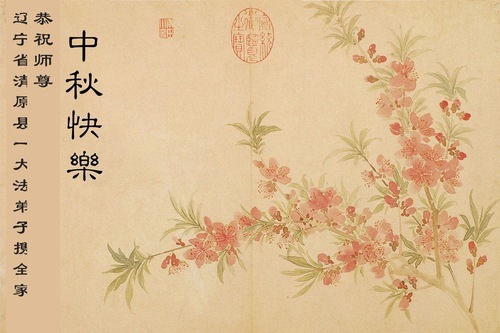 恭祝师尊
辽宁省清原县一大法弟子携全家
中秋快樂